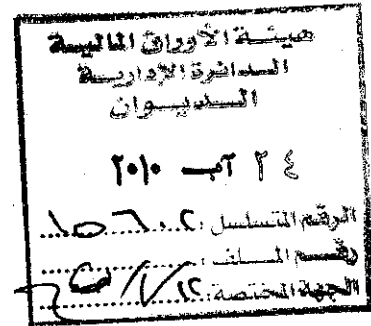 هيئة الأوراق المالية
الدائرة الإدارية
الديوان
٢٤ آب ٢٠١٠
الرقم المتسلسل:
رقم الملف:
الجهة المختصة: